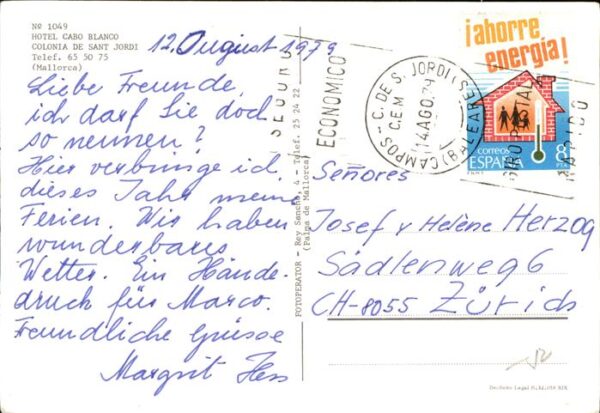 Nº 1049
HOTEL CABO BLANCO
COLONIA DE SANT JORDI
Telef. 65 50 75
(Mallorca)
12. August 1979
Liebe Freunde,
ich darf Sie doch
so nennen?
Hier verbringe ich
dieses Jahr meine
Ferien. Wir haben
wunderbares
Wetter. Ein Hände-
druck für Marco.
Freundliche Grüsse
Margrit Hess
FOTOPERATOR - Rey Sancho, 4 - Telef. 25 24 22
(Palma de Mallorca)
SEGURO
ECONOMICO
CAMPOS - C. DE S. JORDI (S.E.)
C.E.M.
14 AGO. 79
(BALEARES)
GIRO POSTAL
RAPIDO
¡ahorre
energía!
correos
ESPAÑA
8
Señores
Josef y Helène Herzog
Sädlenweg 6
CH-8055 Zürich